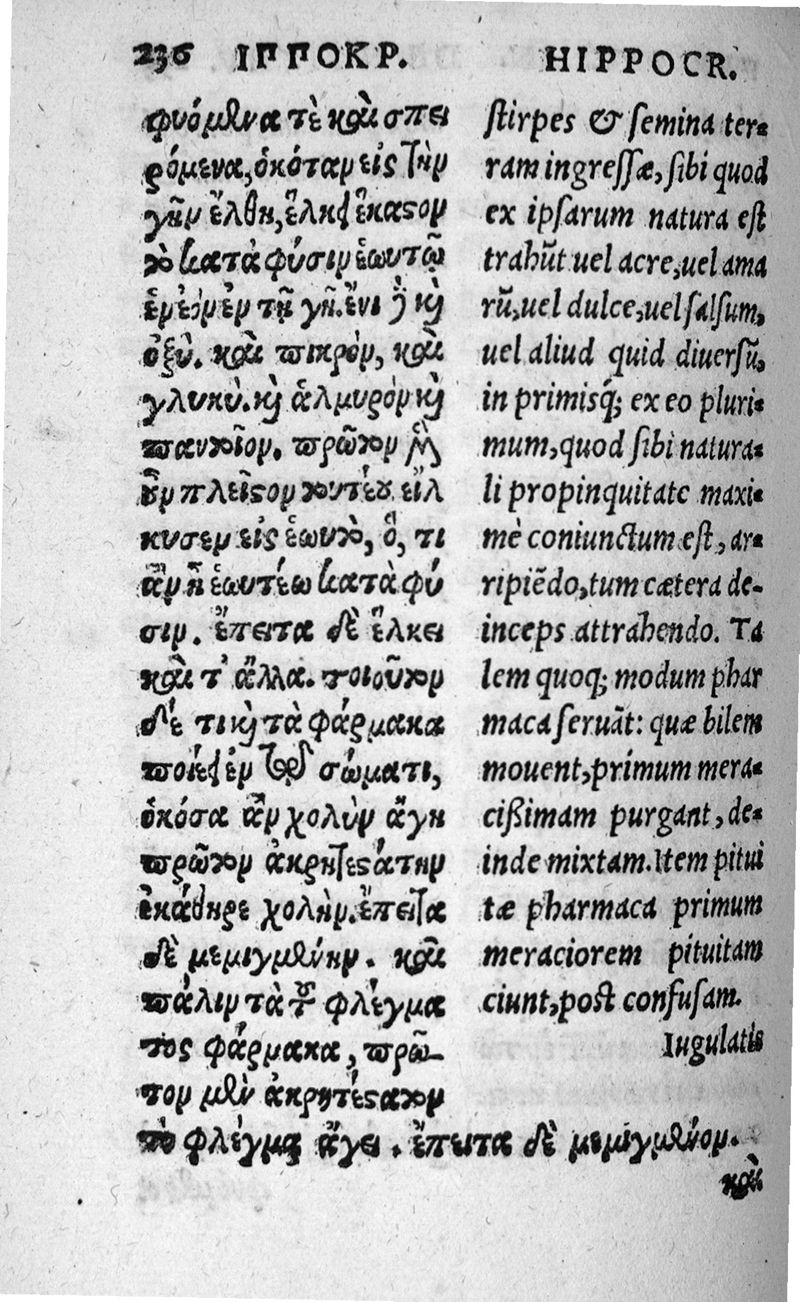 236 ΙΠΠΟΚΡ. HIPPOCR.
φυόμενα τὲ καὶ σπει
ρόμενα, ὁκόταν εἰς τὴν
γῆν ἔλθῃ, ἕλκει ἕκαστον
τὸ κατὰ φύσιν ἑωυτῷ
ἐνεὸν ἐν τῇ γῇ. ἔνι δὲ καὶ
ὀξὺ. καὶ πικρὸν, καὶ
γλυκὺ. καὶ ἁλμυρὸν καὶ
παντοῖον. πρῶτον μὲν
οὖν πλεῖστον τουτέου εἵλ
κυσεν εἰς ἑωυτὸ, ὅ, τι
ἂν ᾖ ἑωυτέω κατὰ φύ
σιν. ἔπειτα δὲ ἕλκει
καὶ τ' ἄλλα. τοιοῦτον
δέ τι καὶ τὰ φάρμακα
ποιέει ἐν τῷ σώματι,
ὁκόσα ἂν χολὴν ἄγῃ
πρῶτον ἀκρητεστάτην
ἐκάθηρε χολὴν. ἔπειτα
δὲ μεμιγμένην. καὶ
πάλιν τὰ τοῦ φλέγμα
τος φάρμακα, πρῶ-
τον μὲν ἀκρητέστατον
τὸ φλέγμα ἄγει. ἔπειτα δὲ μεμιγμένον.
καὶ
stirpes & semina ter-
ram ingressæ, sibi quod
ex ipsarum natura est
trahũt uel acre, uel ama
rũ, uel dulce, uel salsum,
uel aliud quid diuersũ,
in primisq́; ex eo pluri-
mum, quod sibi natura-
li propinquitate maxi-
mè coniunctum est, ar-
ripiẽdo, tum cætera de-
inceps attrahendo. Ta
lem quoq; modum phar
maca seruãt: quæ bilem
mouent, primum mera-
cißimam purgant, de-
inde mixtam. Item pitui
tæ pharmaca primum
meraciorem pituitam
ciunt, post confusam.
Iugulatis